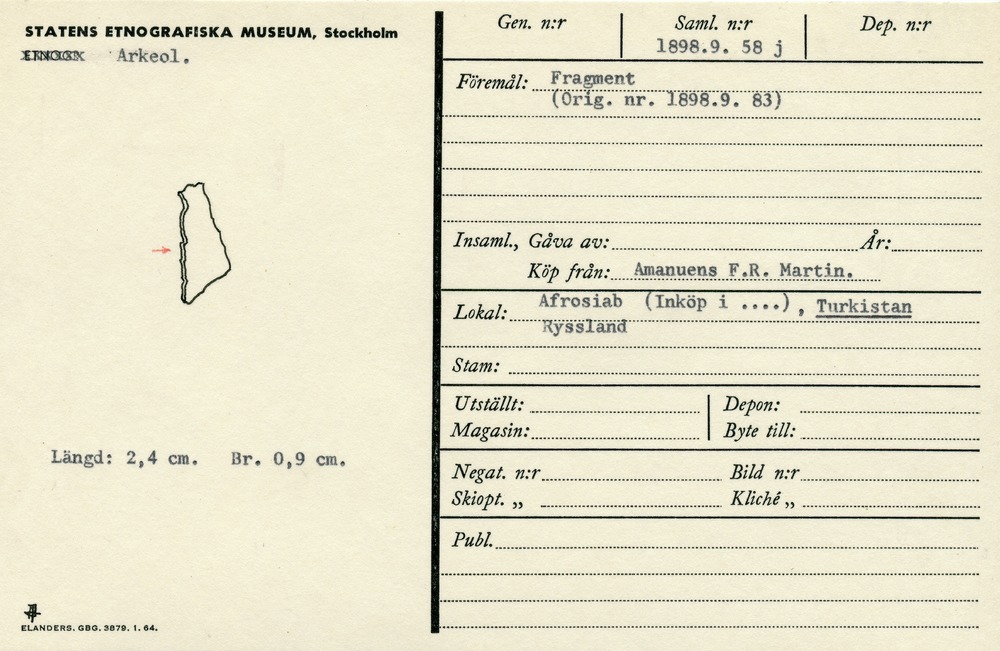 STATENS ETNOGRAFISKA MUSEUM, Stockholm
Arkeol.
Längd: 2,4 cm. Br. 0,9 cm.
ELANDERS. GBG. 3879. 1. 64.
Gen. n:r
Saml. n:r
1898.9. 58 j
Dep. n:r
Föremål: Fragment
(Orig. nr. 1898.9. 83)
Insaml., Gåva av: År:
Köp från: Amanuens F.R. Martin.
Lokal: Afrosiab (Inköp i ....), Turkistan
Ryssland
Stam:
Utställt: Depon:
Magasin: Byte till:
Negat. n:r Bild n:r
Skiopt. „ Kliché „
Publ.